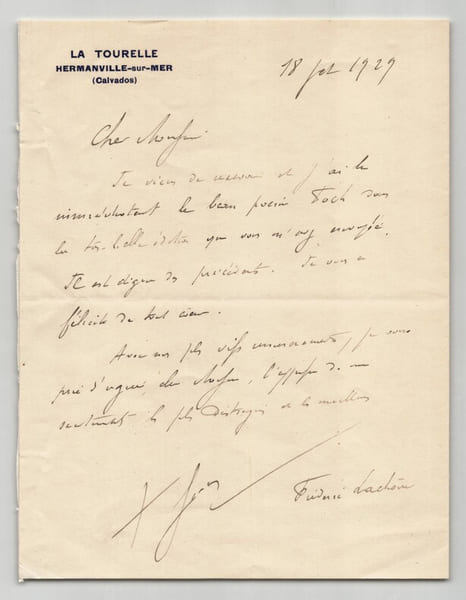 LA TOURELLE
HERMANVILLE-sur-MER
(Calvados)
18 1929
Cher Monsieur
Je viens de recevoir et j'ai lu
immédiatement le beau poème Foch dans
la très belle édition que vous m'avez envoyée.
Il est digne des précédents. Je vous en
félicite de tout cœur.
Avec mes plus vifs remerciements, je vous
prie d'agréer, cher Monsieur, l'expression de mes
sentiments les plus distingués et les meilleurs
Frédéric